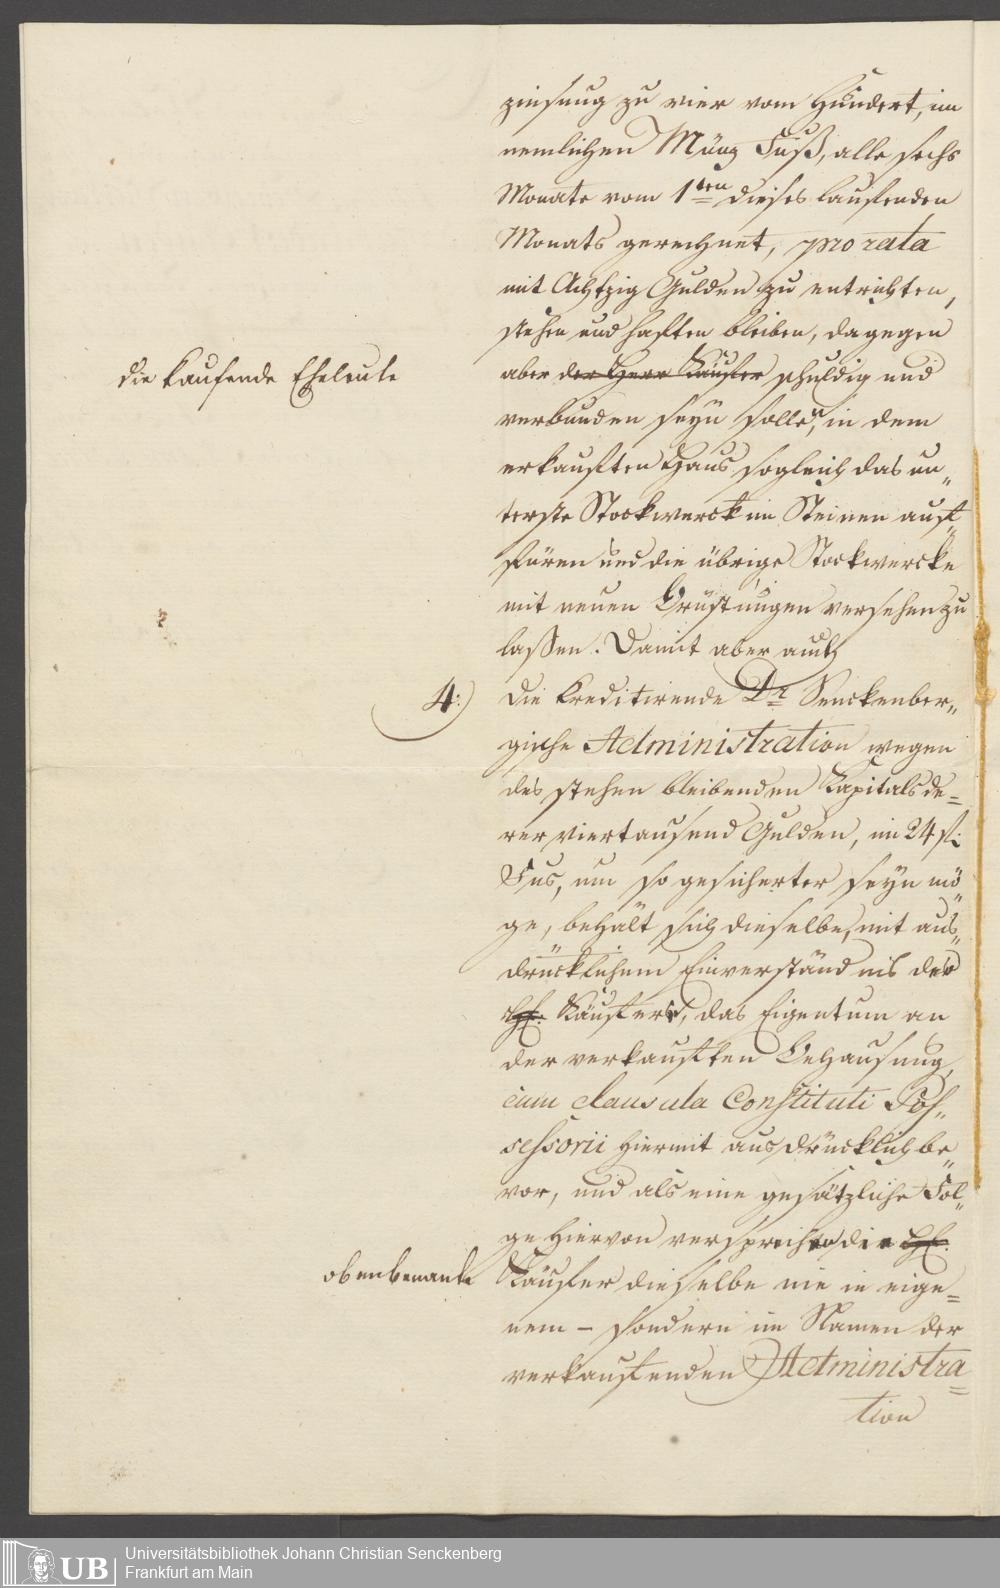 zinsung zu vier vom Hundert, im
nemlichen Münz Fuß, alle sechs
Monate vom 1ten dieses laufenden
Monats gerechnet, pro rata
mit Achtzig Gulden zu entrichten,
stehen und haften bleiben, dagegen
die kaufende Eheleute
aber der Herr Käufer schuldig und
verbunden seyn sollen, in dem
erkauften Haus sogleich das un„
terste Stockwerck in Steinen auf„
füren und die übrige Stockwercke
mit neuen Brüstungen versehen zu
laßen. Damit aber auch
4:) die Kreditirende Dr. Senckenber„
gische Administration wegen
des stehen bleibenden Kapitals de=
rer viertausend Gulden, im 24 fl:
Fus, um so gesicherter seyn mö„
ge, behält sich dieselbe, mit aus„
drücklichem Einverständnis der
H. Käufer, das Eigentum an
der verkauften Behausung,
cum clausula Constituti Pos„
sessorii hiermit ausdrücklich be„
vor, und als eine gesätzliche Fol„
ge hiervon versprechen die H.
obenbenante
Käufer dieselbe nie in eige=
nem – sondern im Namen der
verkaufenden Administra=
tion
UB
Universitätsbibliothek Johann Christian Senckenberg
Frankfurt am Main